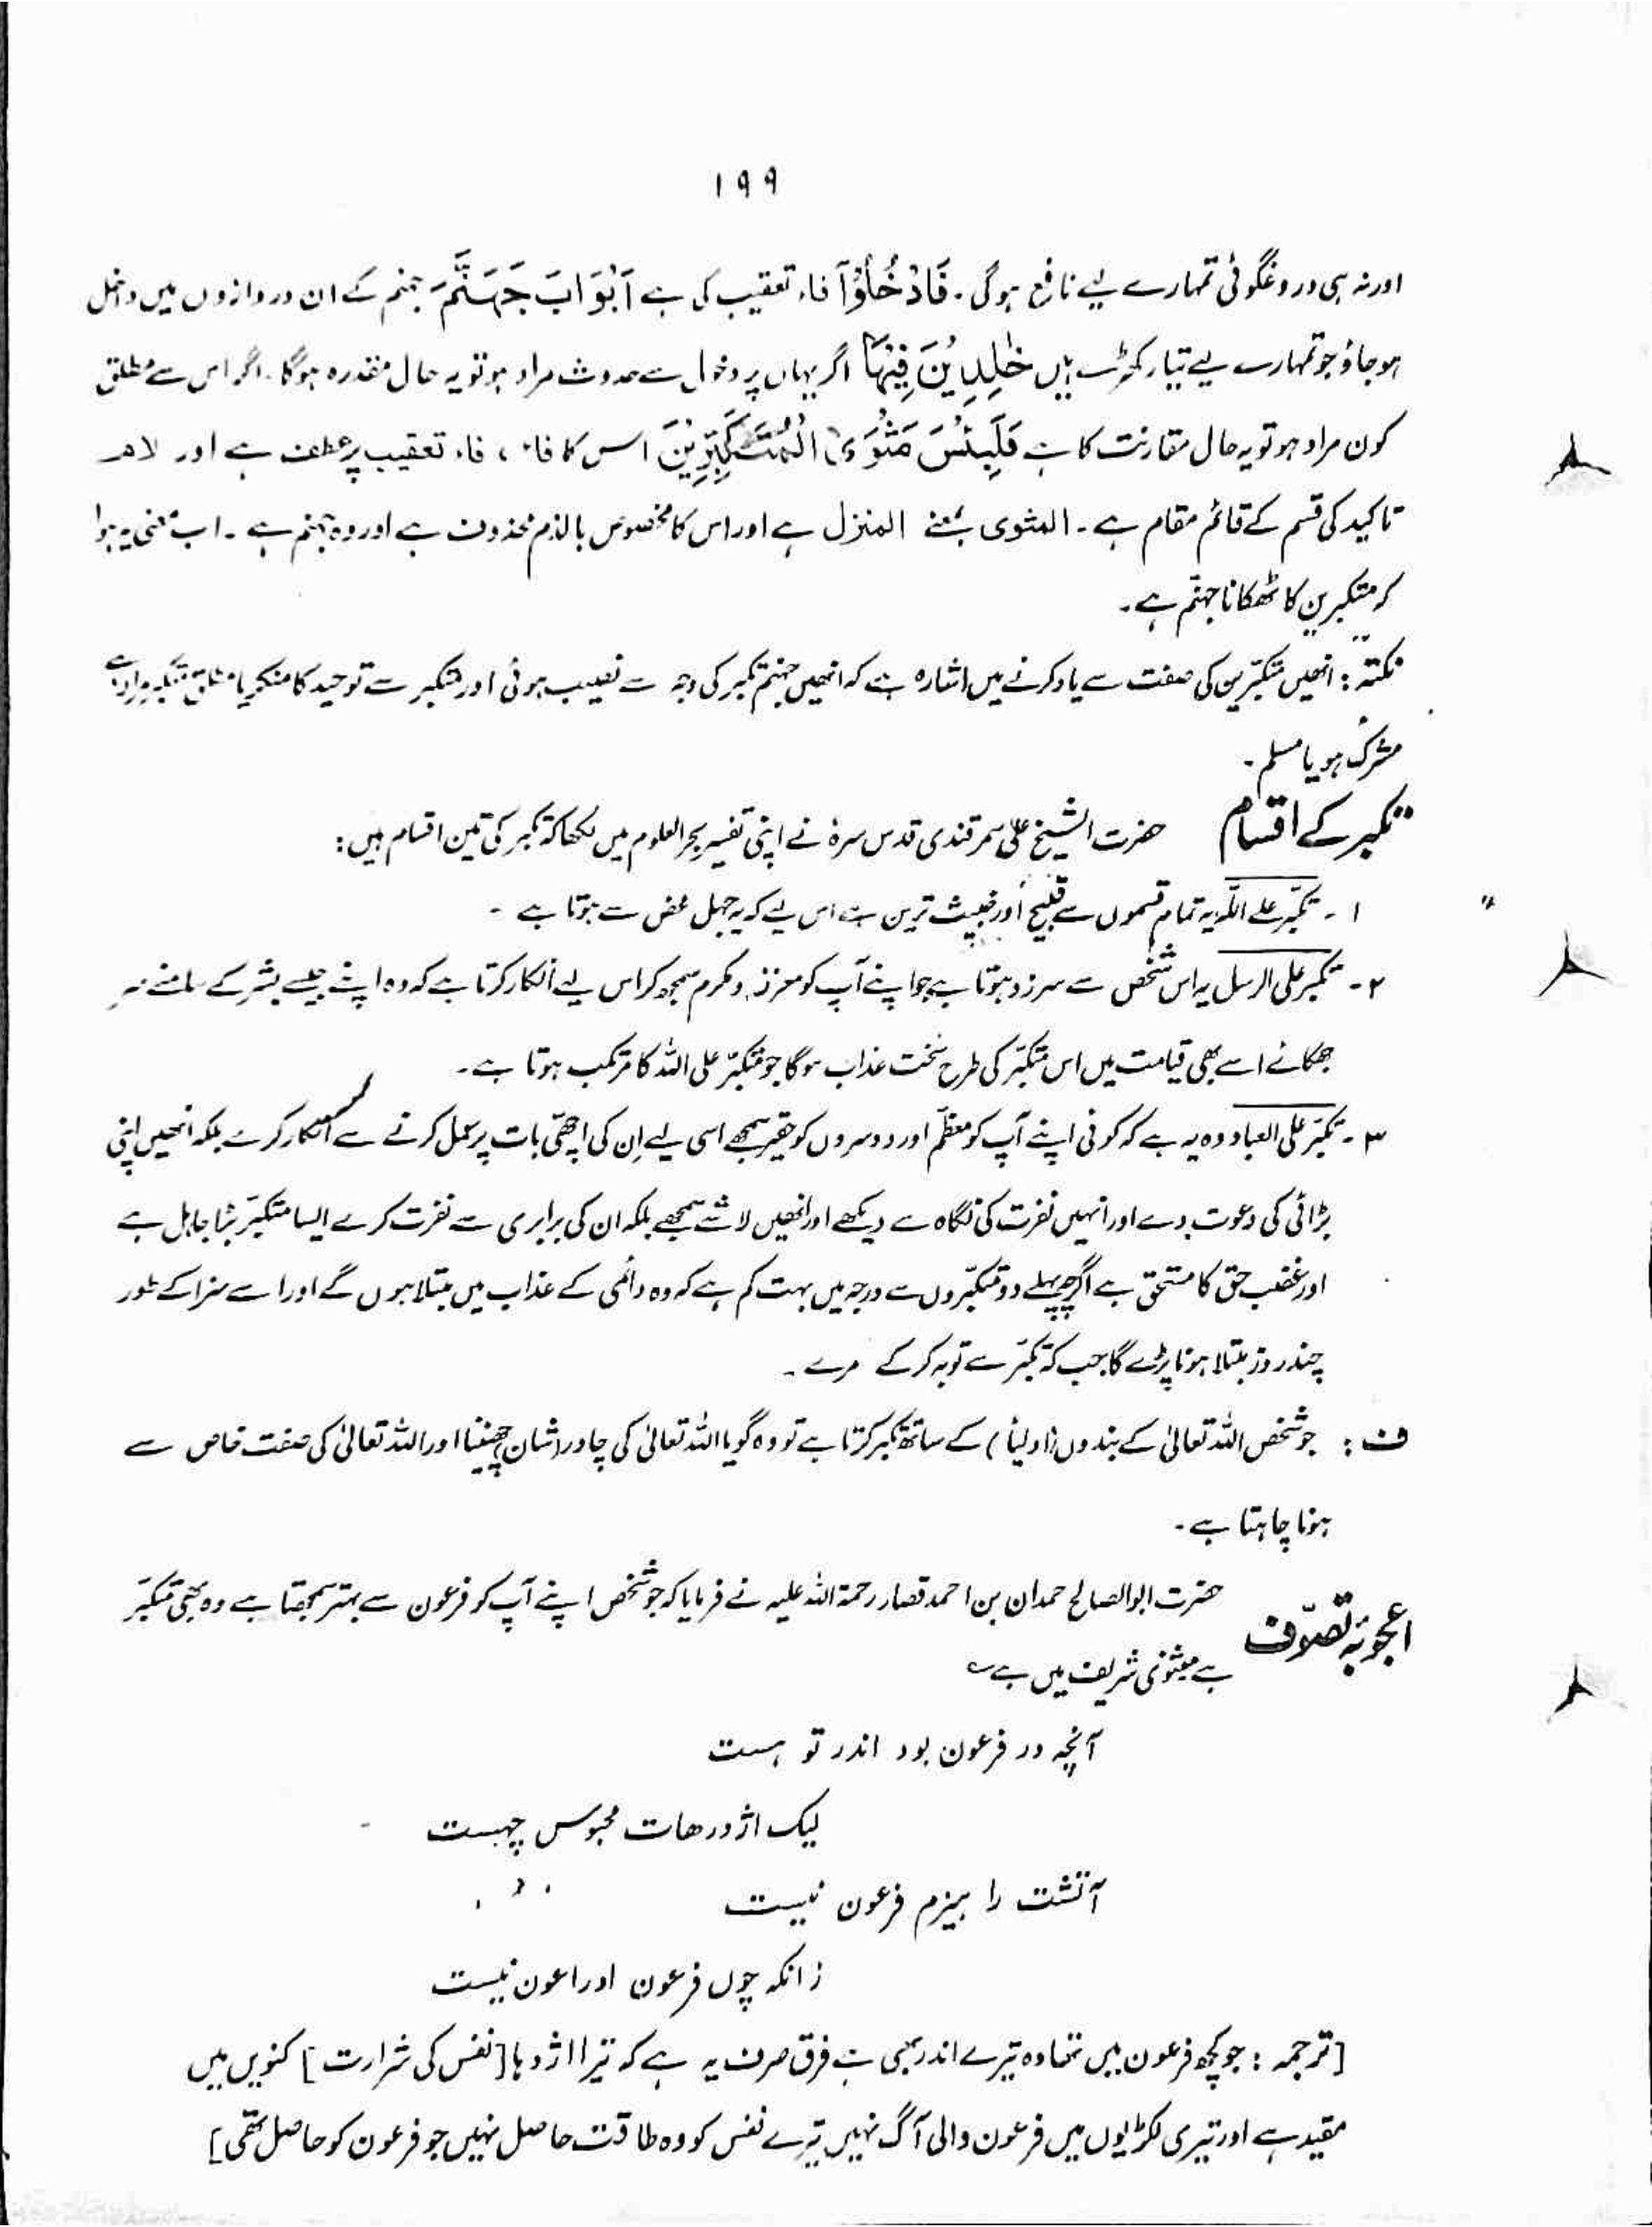 ۱۹۹
اور نہ ہی دروغگوئی تمہارے لیے نافع ہوگی۔ فَادْخُلُوْٓا فاء تعقیب کی ہے اَبْوَابَ جَهَنَّمَ جہنم کے ان دروازوں میں داخل
ہو جاؤ جو تمہارے لیے تیار کھڑے ہیں خٰلِدِيْنَ فِيْهَا اگر یہاں پر دخول سے حدوث مراد ہو تو یہ حال مقدرہ ہوگا۔ اگر اس سے مطلق
کون مراد ہو تو یہ حال مقارنت کا ہے فَلَبِئْسَ مَثْوَى الْمُتَكَبِّرِيْنَ اس کا فاء، فاء تعقیب پر عطف ہے اور لام
تاکید کی قسم کے قائم مقام ہے۔ المثوی بمعنے المنزل ہے اور اس کا مخصوص بالذم محذوف ہے اور وہ جہنم ہے۔ اب معنی یہ ہوا
کہ متکبرین کا ٹھکانا جہنم ہے۔
نکتہ: انھیں متکبّرین کی صفت سے یاد کرنے میں اشارہ ہے کہ انھیں جہنم تکبر کی وجہ سے نصیب ہوئی اور متکبر سے توحید کا منکر یا مطلق متکبر مراد ہے
مشرک ہو یا مسلم۔
تکبر کے اقسام حضرت الشیخ علی سمرقندی قدس سرہٗ نے اپنی تفسیر بحر العلوم میں لکھا کہ تکبر کی تین اقسام ہیں:
۱۔ تکبّر علے اللہ یہ تمام قسموں سے قبیح اور خبیث ترین ہے اس لیے کہ یہ جہل محض سے ہوتا ہے۔
۲۔ تکبر علی الرسل یہ اس شخص سے سرزد ہوتا ہے جو اپنے آپ کو معزز و مکرم سمجھ کر اس لیے انکار کرتا ہے کہ وہ اپنے جیسے بشر کے سامنے سر
جھکائے اسے بھی قیامت میں اس متکبّر کی طرح سخت عذاب ہوگا جو تکبّر علی اللہ کا مرتکب ہوتا ہے۔
۳۔ تکبّر علی العباد وہ یہ ہے کہ کوئی اپنے آپ کو معظّم اور دوسروں کو حقیر سمجھے اسی لیے اِن کی اچھّی بات پر عمل کرنے سے انکار کرے بلکہ انھیں اپنی
بڑائی کی دعوت دے اور انہیں نفرت کی نگاہ سے دیکھے اور انھیں لاشے سمجھے بلکہ ان کی برابری سے نفرت کرے ایسا متکبّر بڑا جاہل ہے
اور غضب حق کا مستحق ہے اگرچہ پہلے دو متکبّروں سے درجہ میں بہت کم ہے کہ وہ دائمی کے عذاب میں مبتلا ہوں گے اور اسے سزا کے طور
چند روز مبتلا ہونا پڑے گا جب کہ تکبّر سے توبہ کر کے مرے۔
ف: جو شخص اللہ تعالیٰ کے بندوں (اولیأ) کے ساتھ تکبر کرتا ہے تو وہ گویا اللہ تعالیٰ کی چادر (شان) چھیننا اور اللہ تعالیٰ کی صفت خاص سے
ہونا چاہتا ہے۔
اعجوبۂ تصوّف حضرت ابوالصالح حمدان بن احمد قصار رحمۃ اللہ علیہ نے فرمایا کہ جو شخص اپنے آپ کو فرعون سے بہتر سمجھتا ہے وہ بھی متکبّر
ہے مثنوی شریف میں ہے؎
آنچہ در فرعون بود اندر تو ہست
لیک اژدرهات محبوس چہست
آتشت را ہیزم فرعون نیست
زانکہ چوں فرعون اورا عون نیست
[ترجمہ: جو کچھ فرعون میں تھا وہ تیرے اندر بھی ہے فرق صرف یہ ہے کہ تیرا اژدہا [نفس کی شرارت] کنویں میں
مقید ہے اور تیری لکڑیوں میں فرعون والی آگ نہیں تیرے نفس کو وہ طاقت حاصل نہیں جو فرعون کو حاصل تھی]